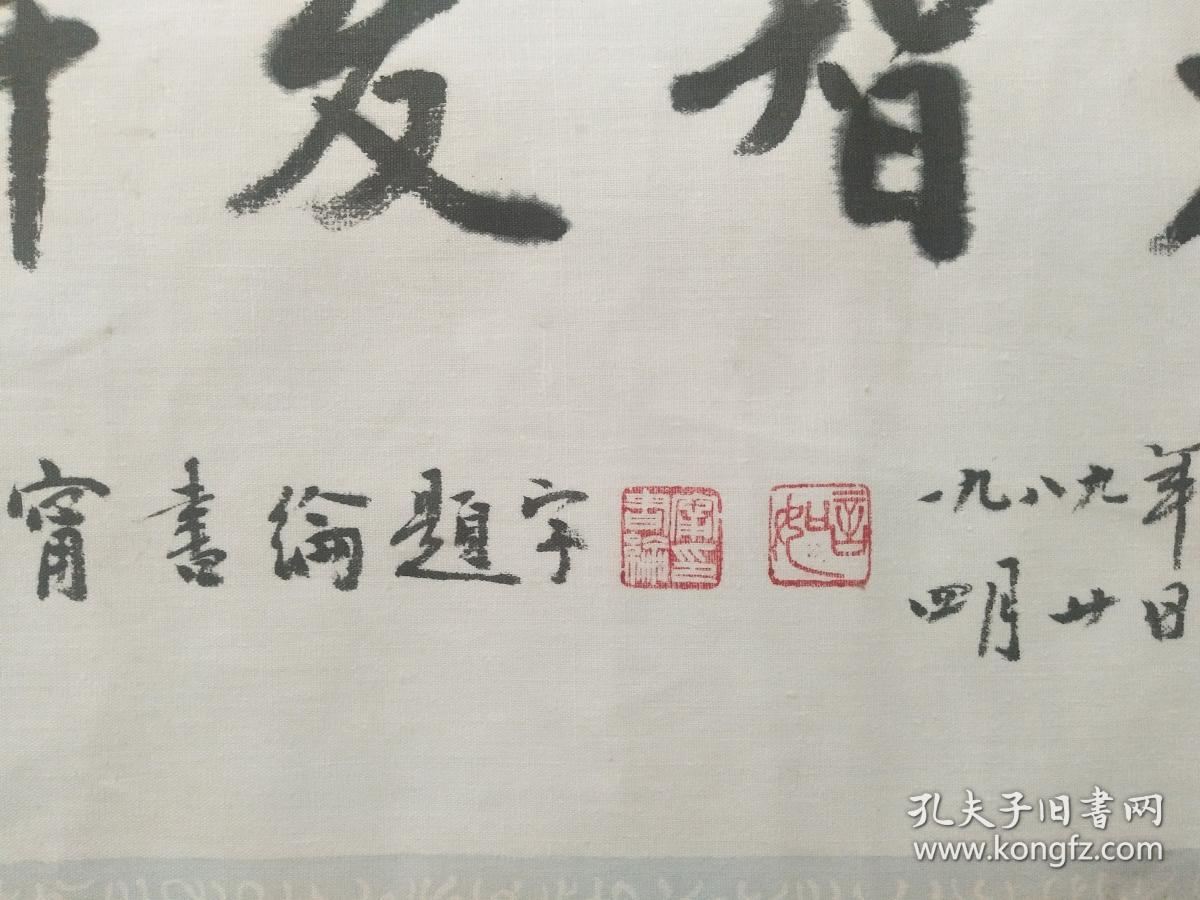 发智
甯書綸題字
一九八九年
四月廿日
孔夫子旧書网
www.kongfz.com